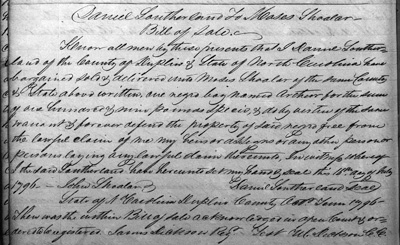 Samuel Southerland To Moses Shoalar
Bill of Sale
Know all men by these presents that I Samuel Souther-
land of the County of Duplin & State of North Carolina have
bargained sold & delivered unto Moses Shoalar of the same County
& State above written one negro boy named Arthur for the sum
of one hundred & nine pounds specia, & do by virtue of the same
warrant & forever defend the property of said negro free from
the lawful claim of me my heirs or any other person or
persons laying any lawful claim thereunto, In witness whereof
I the said Southerland have hereunto set my hand & seal this 18th day of
1796 - John Shoalar Samuel Southerland Seal
State of N Carolina Duplin County Oct Term 1796
Then was the within Bill of Sale acknowledged in open Court & or-
dered to be registered